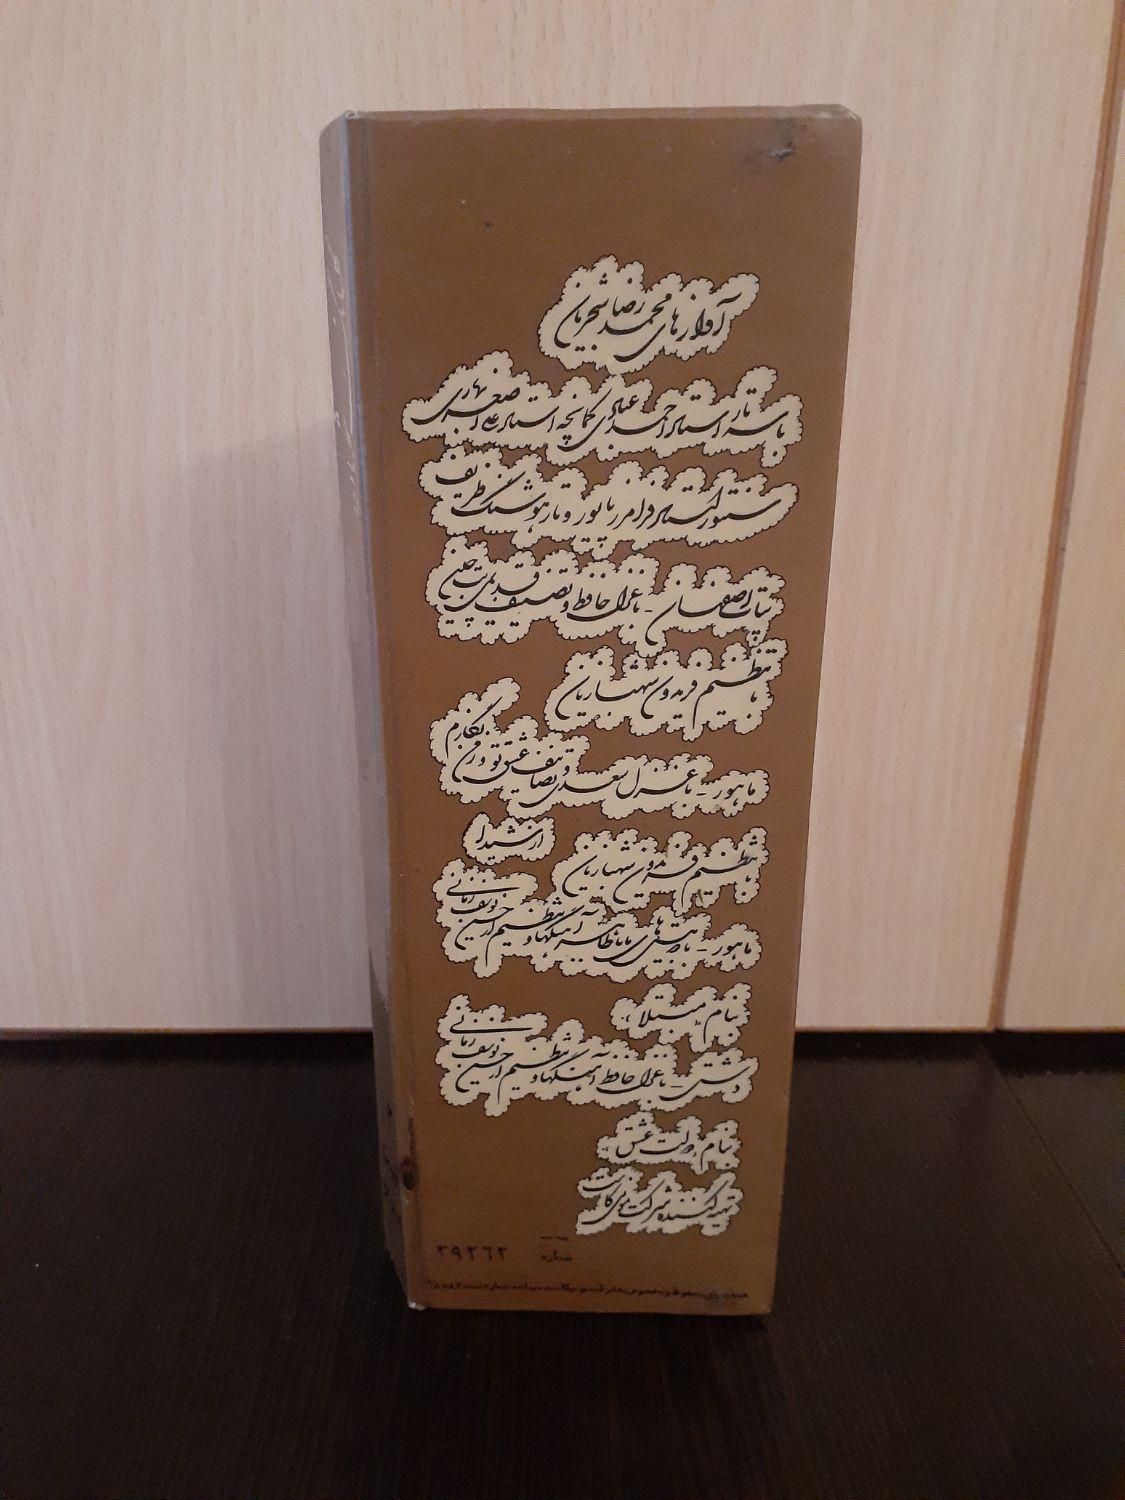 آوازهای محمدرضا شجریان
با سه تار استاد احمد عبادی کمانچه استاد علی اصغر بهاری
سنتور استاد فرامرز پایور و تار هوشنگ ظریف
بیات اصفهان - با غزل حافظ و تصنیف قدیمی بت چین
با تنظیم فریدون شهبازیان
ماهور - با غزل سعدی و تصانیف عشق تو و ز من نگارم
از شیدا
با تنظیم فریدون شهبازیان
ماهور - با دوبیتی های باباطاهر آهنگها و تنظیم از حسن یوسف زمانی
بنام مبتلا
دشتی - با غزل حافظ آهنگها و تنظیم از حسن یوسف زمانی
بنام دولت عشق
تهیه کننده شرکت
شماره ۲۹۲۶۲